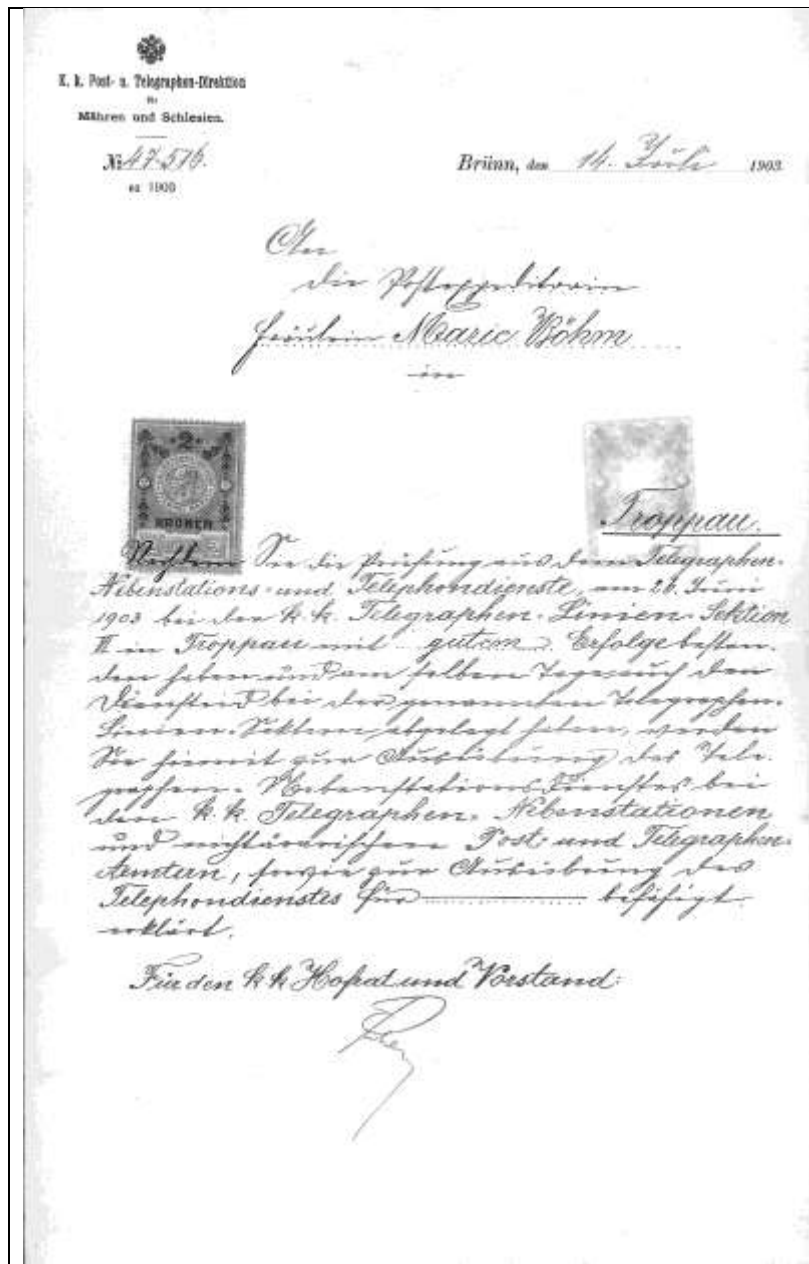 K. k. Post- u. Telegraphen-Direktion
für
Mähren und Schlesien.
№ 47.516.
ex 1903
Brünn, den 14. Juli 1903
An
die Postexpeditorin
Fräulein Marie Böhm
in
2
KRONEN
Troppau.
Nachdem Sie die Prüfung aus dem Telegraphen-
Nebenstations- und Telephondienste, am 26. Juni
1903 bei der k. k. Telegraphen-Linien-Sektion
II in Troppau mit gutem Erfolge bestan-
den haben und am selben Tage auch den
Diensteid bei der genannten Telegraphen-
Linien-Sektion abgelegt haben, werden
Sie hiemit zur Ausübung des Tele-
graphen-Nebenstationsdienstes bei
den k. k. Telegraphen-Nebenstationen
und nichtärarischen Post- und Telegraphen-
Aemtern, sowie zur Ausübung des
Telephondienstes für befähigt
erklärt.
Für den k k Hofrat und Vorstand: